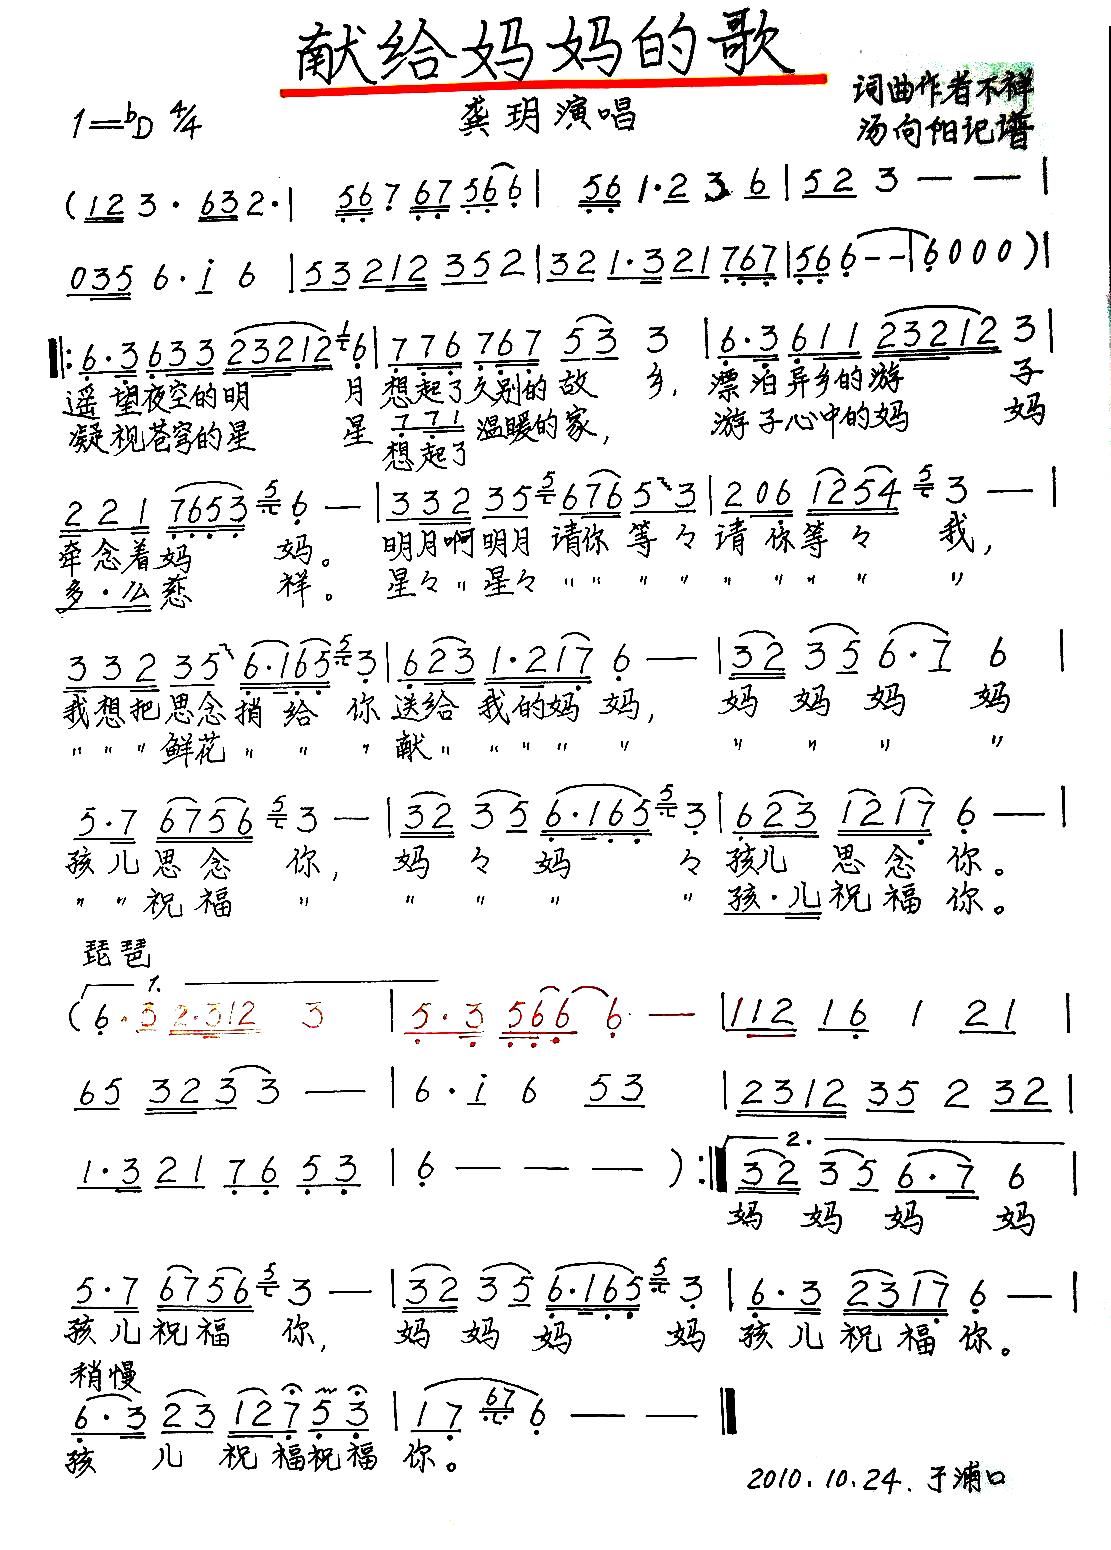 献给妈妈的歌
1=♭D 4/4
龚玥演唱
词曲作者不祥
汤向阳记谱
(123· 632·| 567 67 566| 561·236|523——|
035 6·i 6 |53212 352|321·321767|566——|6000)|
‖:6·3633 232126|776 767 53 3 |6·3611 23212 3|
遥望夜空的明 月 想起了久别的故 乡, 漂泊异乡的游 子
凝视苍穹的星 星 771 温暖的家, 游子心中的妈 妈
想起了
221 7653 5 6 —|332 35 5 676 53|206 1254 5 3 —|
牵念着妈 妈。 明月啊明月 请你 等々 请你等々 我,
多·么慈 祥。 星々〃星々 〃〃〃〃 〃〃〃〃 〃
332 35 6·165 5 3|623 1·217 6 —|32 35 6·7 6 |
我想把思念捎给 你 送给 我的妈 妈, 妈 妈 妈 妈
〃〃〃鲜花〃 〃 〃 献〃 〃〃〃 〃 〃 〃 〃 〃
5·7 6756 5 3 —|32 35 6·165 5 3|623 1217 6 —|
孩儿思念 你, 妈 々 妈 々 孩儿 思念 你。
〃〃祝福 〃 〃 〃 〃 〃 孩·儿祝福 你。
琵琶
1.
(6·3 2·312 3 |5·3 566 6 —|112 16 1 21 |
65 3233 ——|6·i 6 53 |2312 35 2 32|
1·3 21 76 53 |6 — — — ):‖ 2. 32 35 6·7 6 |
妈 妈 妈 妈
5·7 6756 5 3 —|32 35 6·165 5 3|6·3 2317 6 —|
孩儿祝福 你, 妈 妈 妈 妈 孩儿祝福你。
稍慢
6·3 23 127 53|17 67 6 — —‖
孩 儿 祝福祝福 你。
2010.10.24.于浦口